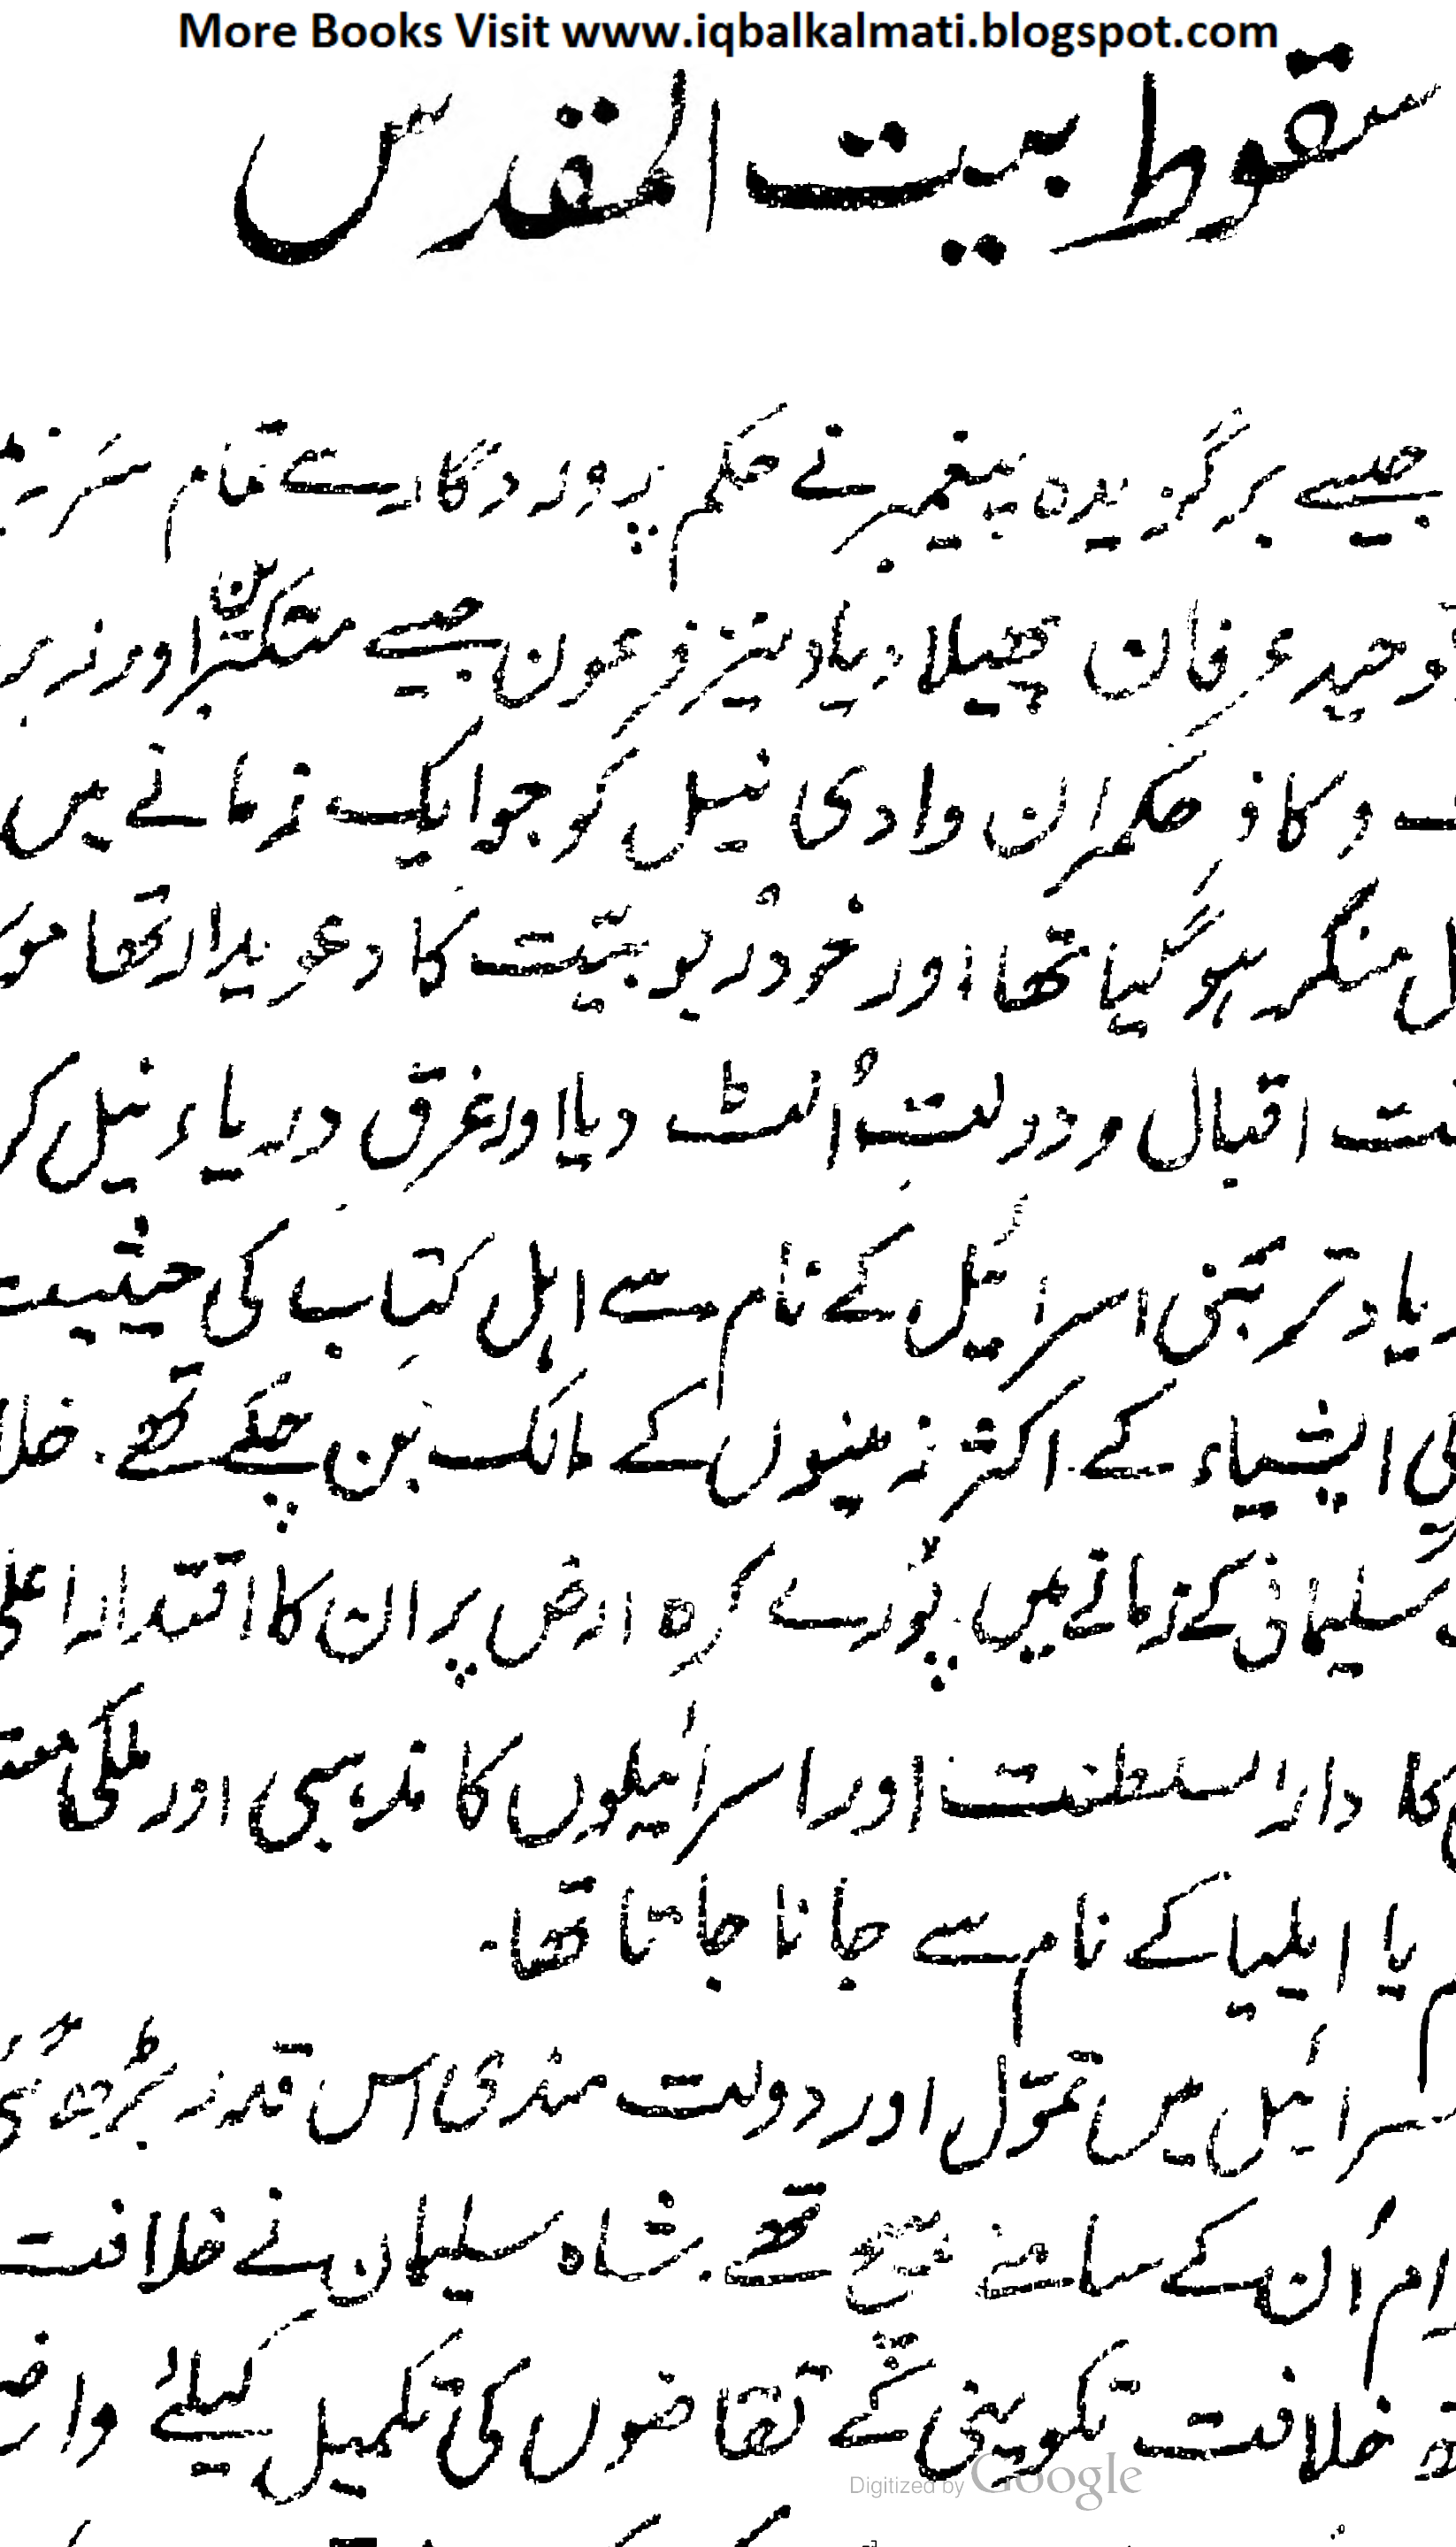 More Books Visit www.iqbalkalmati.blogspot.com
سقوط بیت المقدس
جیسے برگزیدہ پیغمبر نے حکم پروردگار سے تمام سرز
توحید عرفان پھیلا دیا دنیز فرعون جیسے متکبّر بن اور زبر
و کافر حکمران وادی نیل کو جو ایک زمانے میں
منکر ہو گیا تھا اور خود ربوبیّت کا دعویدار تھا
اقبال و دولت اُلٹ دیا اور غرق دریاء نیل کر
تر بنی اسرائیل کے نام سے اہل کتاب کی حیثیت
ایشیاء کے اکثر زمینوں کے مالک بن چکے تھے۔ خلا
سلیمانی کے زمانے میں پورے کرہ ارض پر ان کا اقتدار اعلی
کا دارالسلطنت اور اسرائیلوں کا مذہبی اور ملکی
یا ایلیا کے نام سے جانا جاتا تھا۔
سرائیل میں تموّل اور دولت مندی اس قدر بڑھ گئی
اُن کے سامنے ہیچ تھے۔ شاہ سلیمان نے خلافت
خلافت تکوینی کے تقاضوں کی تکمیل کیلئے
Digitized by Google